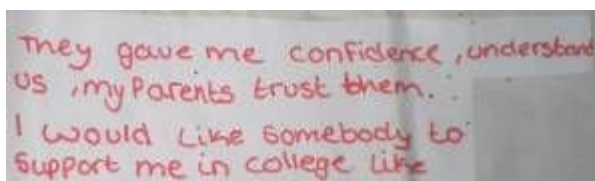 They gave me confidence, understand
us, my Parents trust them.
I would like somebody to
support me in college like